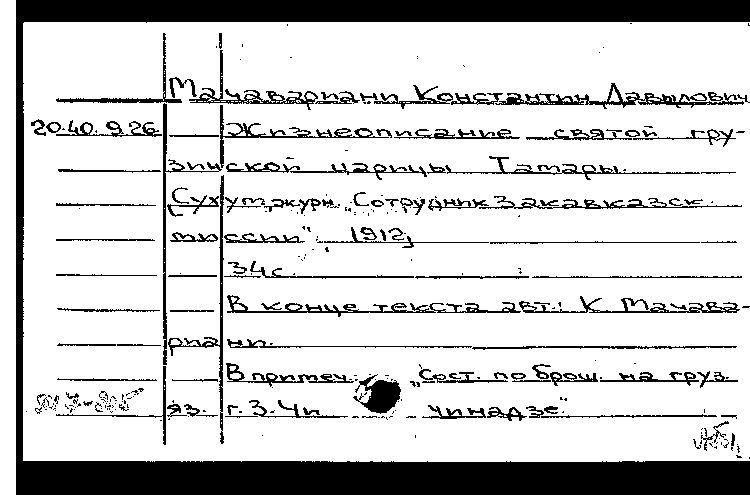 Мачавариани, Константин Давыдович
20.40.9.26 Жизнеописание святой гру-
зинской царицы Тамары.
[Сухум, журн. „Сотрудник Закавказск.
миссии", 1912,
34 с.
В конце текста авт.: К. Мачава-
риани.
В примеч.: „Сост. по брош. на груз.
яз. г. З. Чи чинадзе"